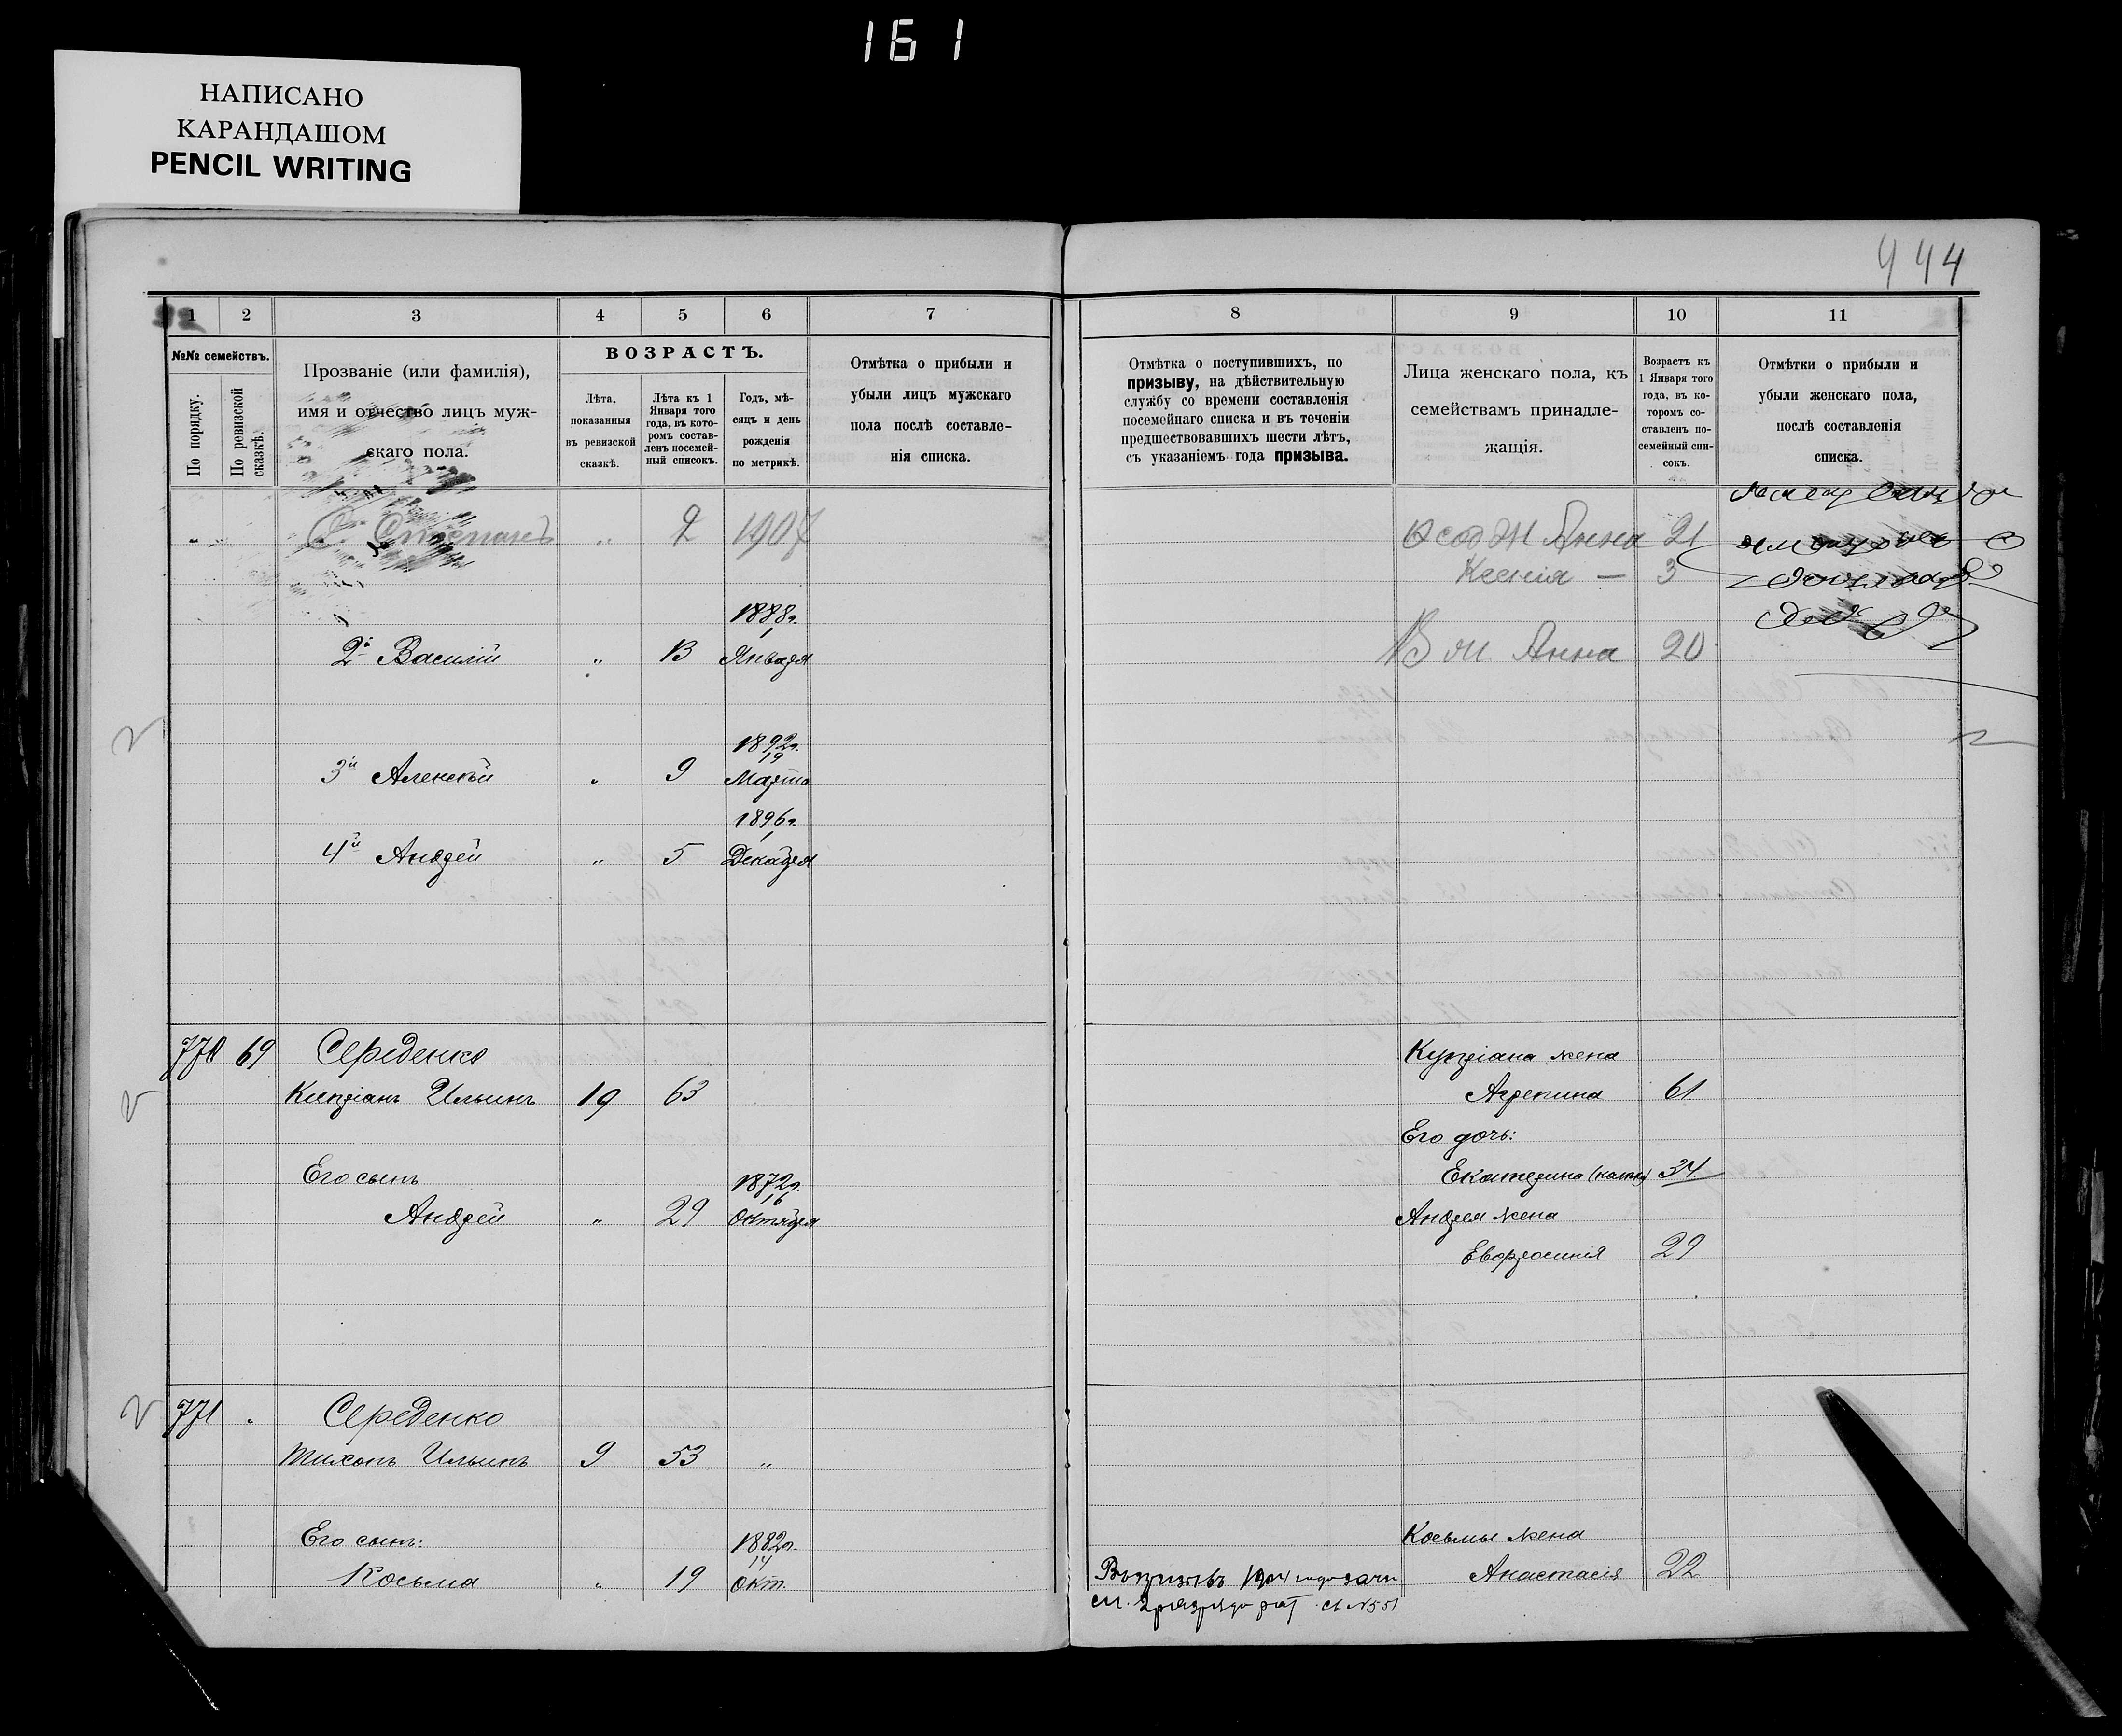 161
НАПИСАНО
КАРАНДАШОМ
PENCIL WRITING
444
1 2 3 4 5 6 7 8 9 10 11
№№ семействъ.
По порядку.
По ревизской сказкѣ.
Прозваніе (или фамилія),
имя и отчество лицъ муж-
скаго пола.
ВОЗРАСТЪ.
Лѣта,
показанныя
въ ревизской
сказкѣ.
Лѣта къ 1
Января того
года, въ кото-
ромъ состав-
ленъ посемей-
ный списокъ.
Годъ, мѣ-
сяцъ и день
рожденія
по метрикѣ.
Отмѣтка о прибыли и
убыли лицъ мужскаго
пола послѣ составле-
нія списка.
Отмѣтка о поступившихъ, по
призыву, на дѣйствительную
службу со времени составленія
посемейнаго списка и въ теченіи
предшествовавшихъ шести лѣтъ,
съ указаніемъ года призыва.
Лица женскаго пола, къ
семействамъ принадле-
жащія.
Возрастъ къ
1 Января того
года, въ ко-
торомъ со-
ставленъ по-
семейный спи-
сокъ.
Отмѣтки о прибыли и
убыли женскаго пола,
послѣ составленія
списка.
" С. Степанъ " 2 1907
Ж Анна 21
Ксенія — 3
1888г.
2й Василій " 13 1 Января
В ж Анна 20
1892г.
19
3й Алексѣй " 9 Марта
1896г.
1
4й Андрей " 5 Декабря
770 69 Середенко
Кипріанъ Ильинъ 19 63
Его сынъ
1872г.
16
Андрей " 29 Октября
Купріана жена
Агрепина 61
Его дочь:
Екатерина 34
Андрея жена
Евфросинія 29
771 " Середенко
Тихонъ Ильинъ 9 53 "
Его сынъ:
1882г.
14
Косьма " 19 Окт.
Въ призывъ 1904 года зачи
Косьмы жена
Анастасія 22